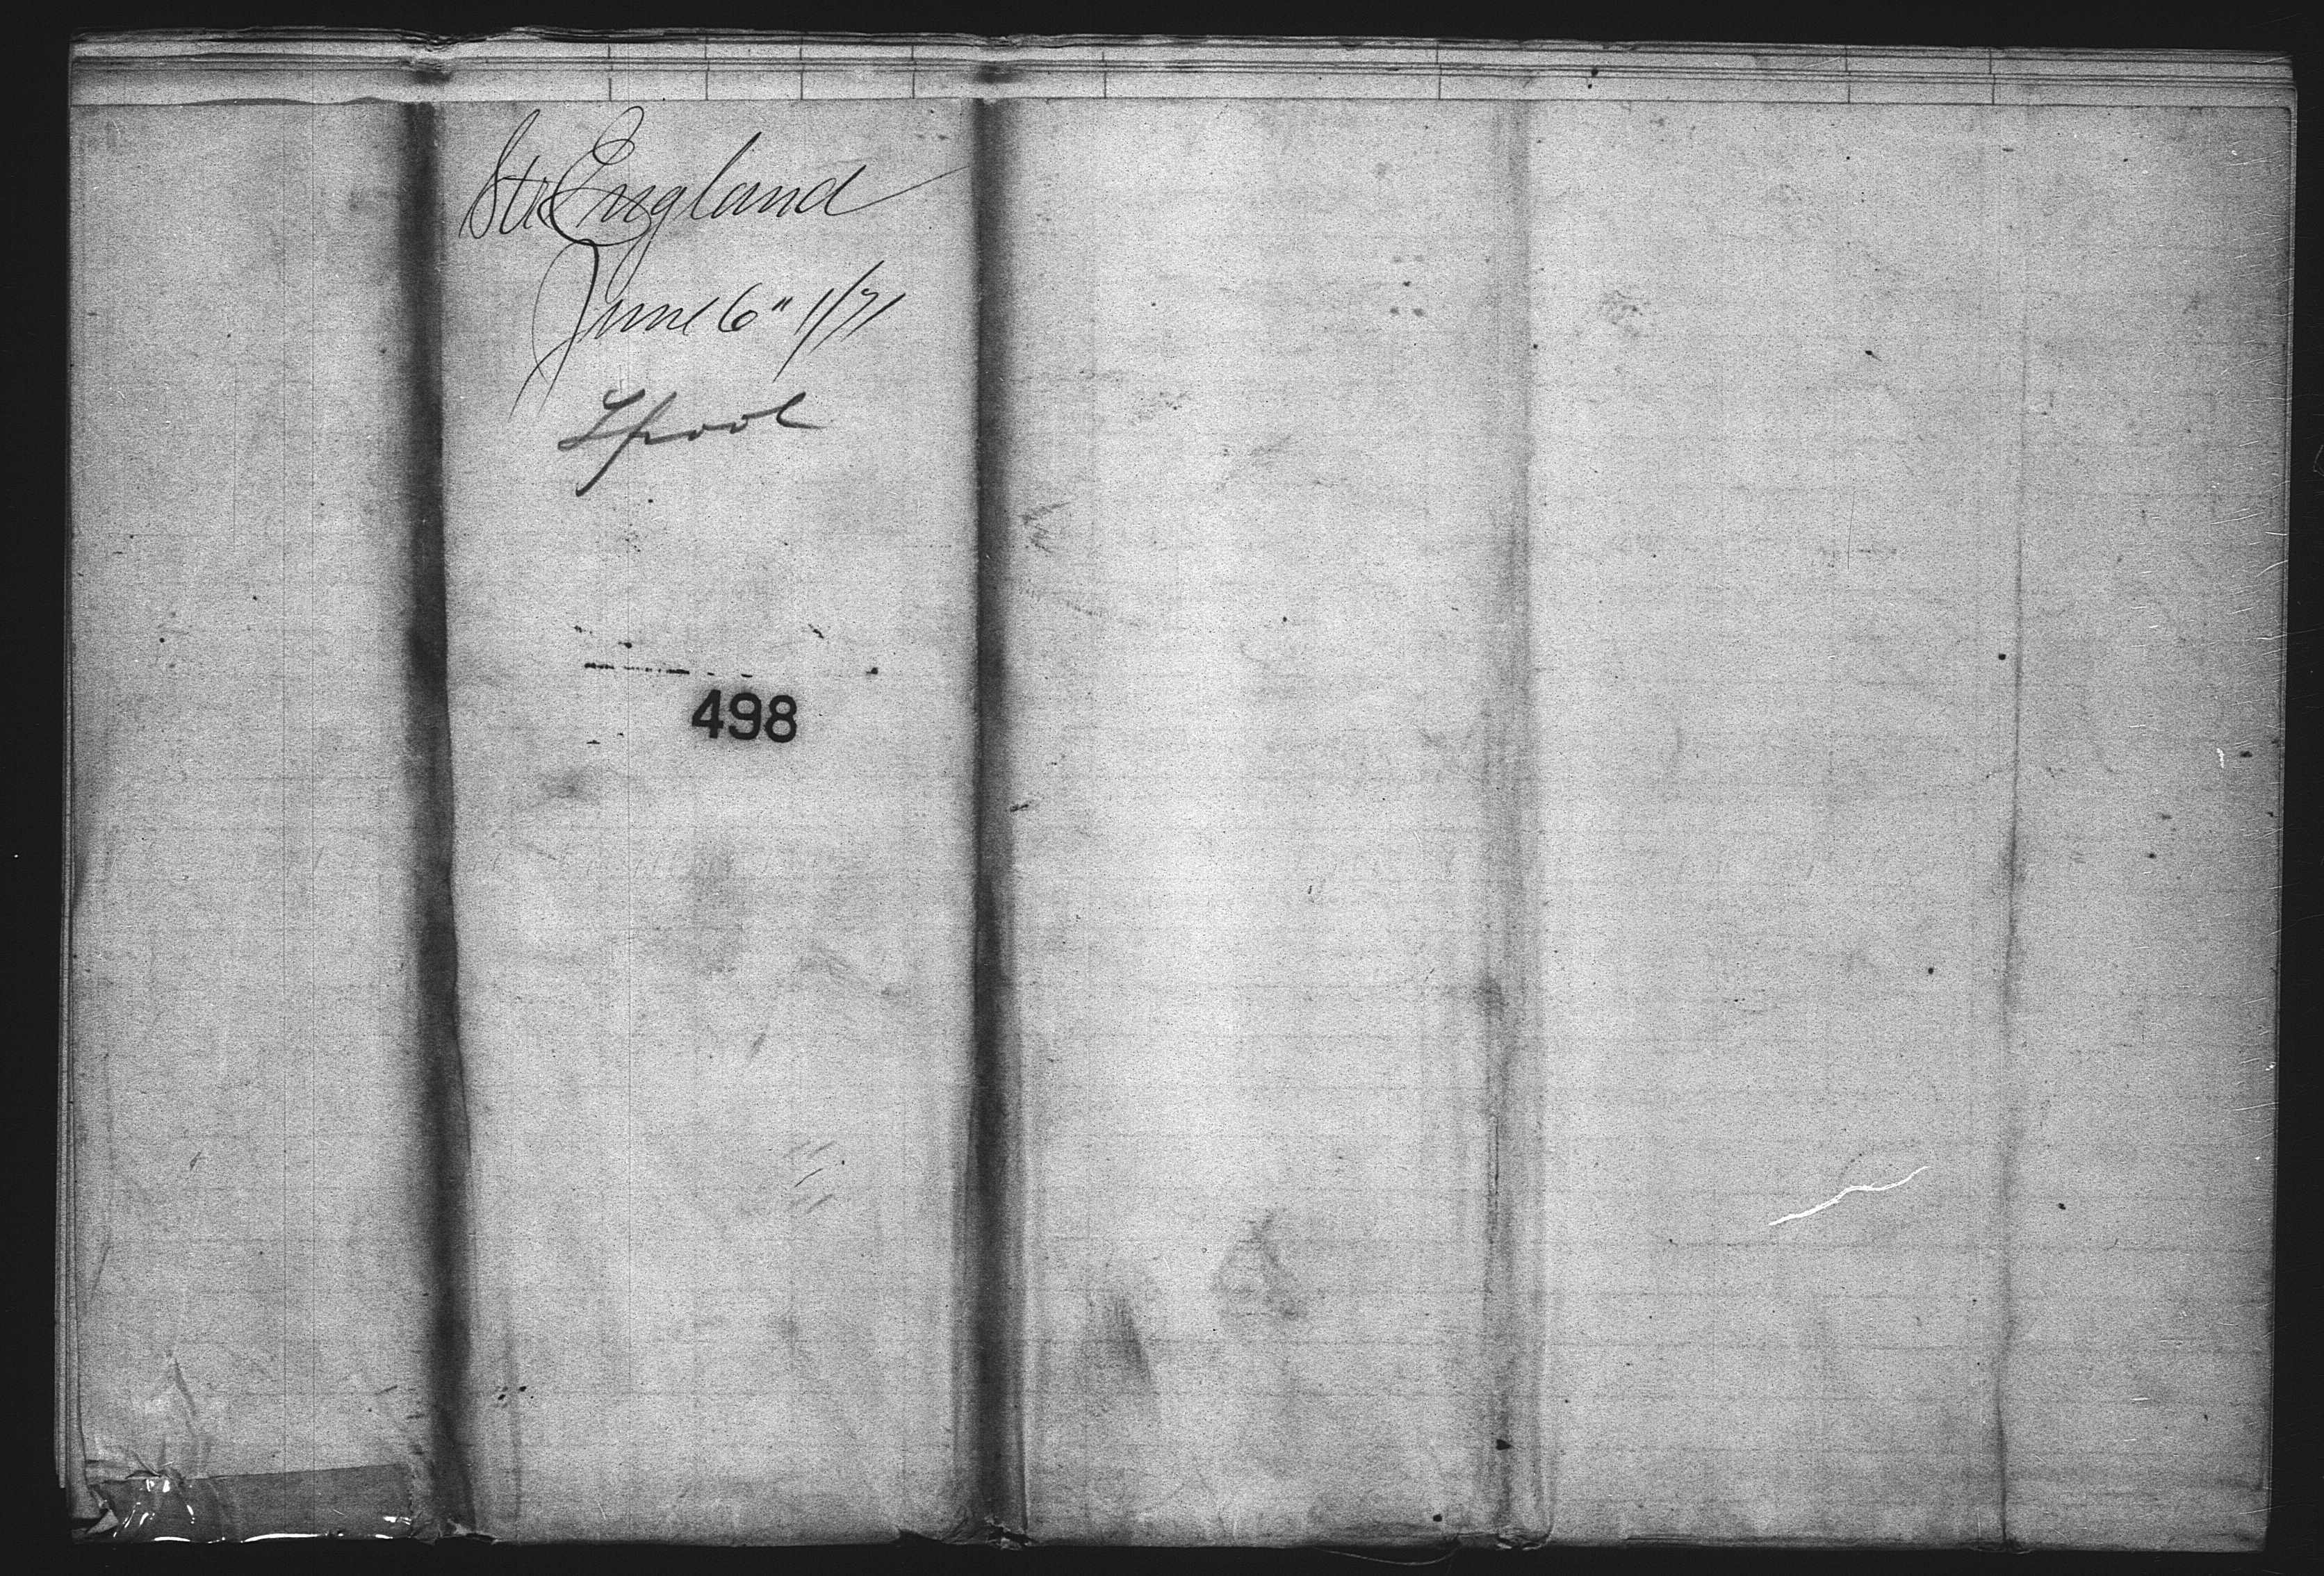 Str England
June 6" 1/71
Lpool
498